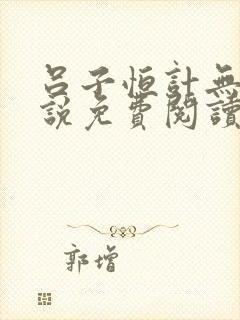 呂子恒計無
說免費閱讀
郭增